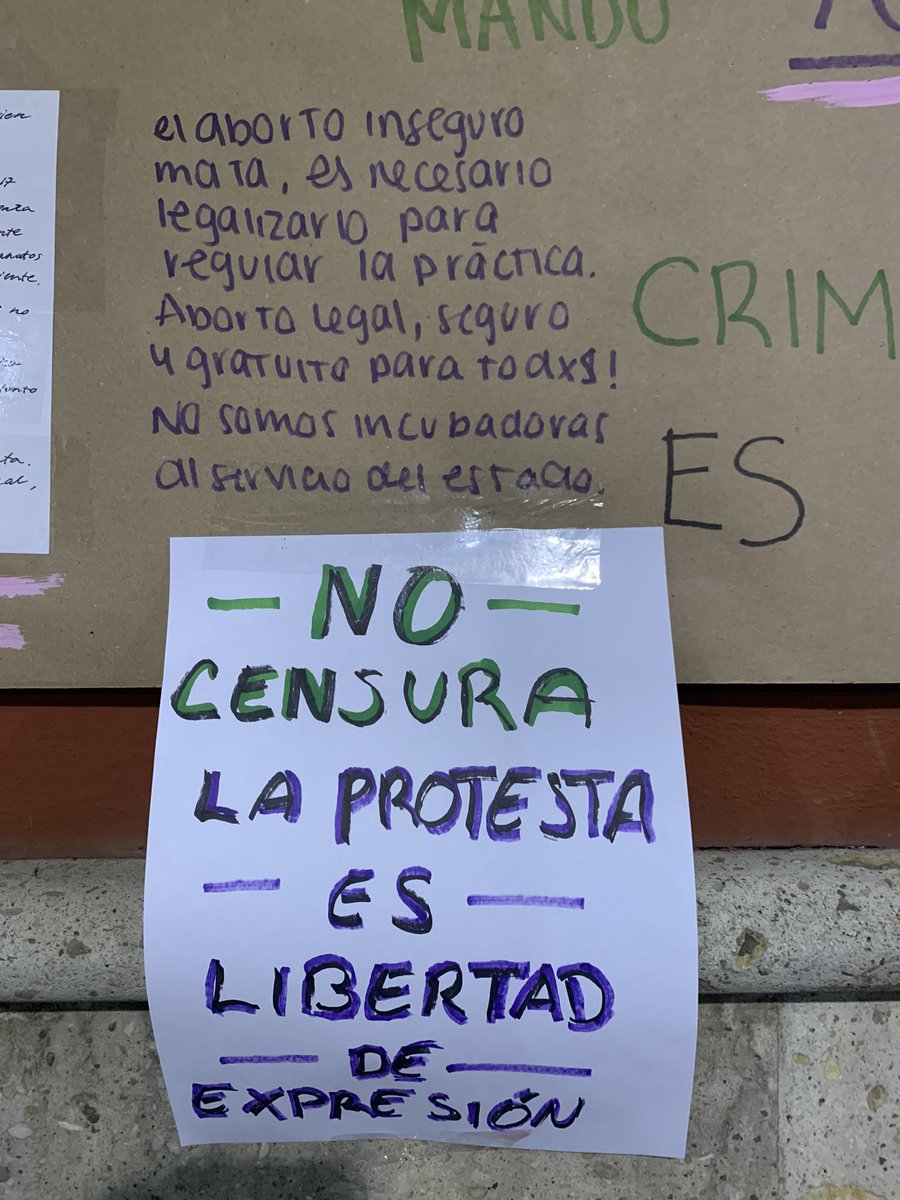 MANDO
el aborto inseguro
mata, es necesario
legalizarlo para
regular la práctica.
Aborto legal, seguro
y gratuito para todxs!
No somos incubadoras
al servicio del estado.
CRIM
ES
— NO —
CENSURA
LA PROTESTA
— ES —
LIBERTAD
— DE —
EXPRESIÓN